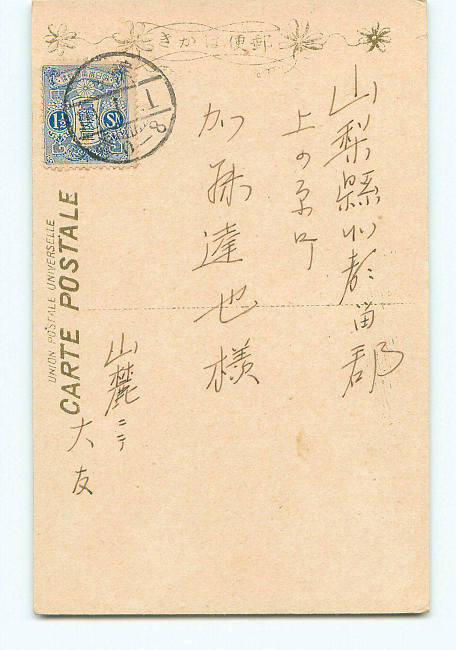 きかは便郵
山梨縣北都留郡
上の原町
加藤達也様
山麓ニテ
大友
UNION POSTALE UNIVERSELLE
CARTE POSTALE
1½ Sn